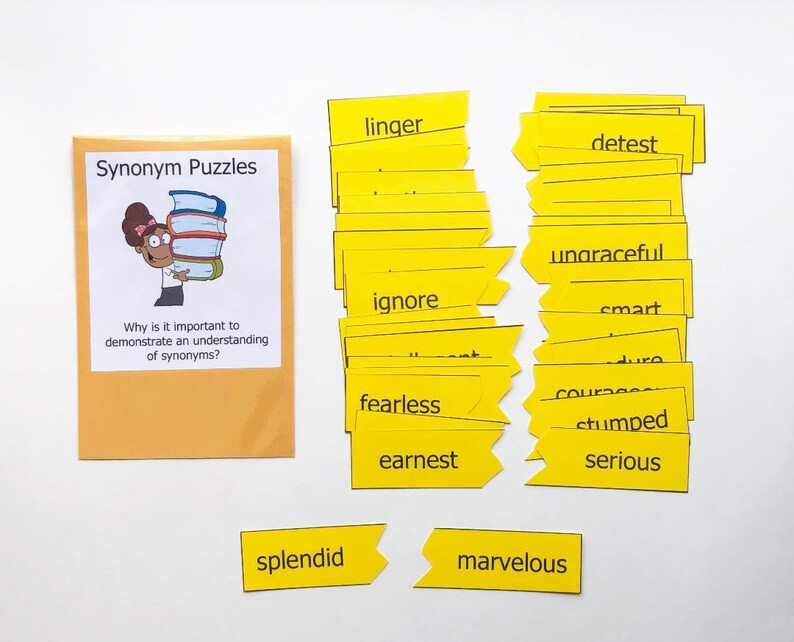 Synonym Puzzles
Why is it important to
demonstrate an understanding
of synonyms?
linger
ignore
fearless
earnest
detest
ungraceful
smart
courageous
stumped
serious
splendid
marvelous